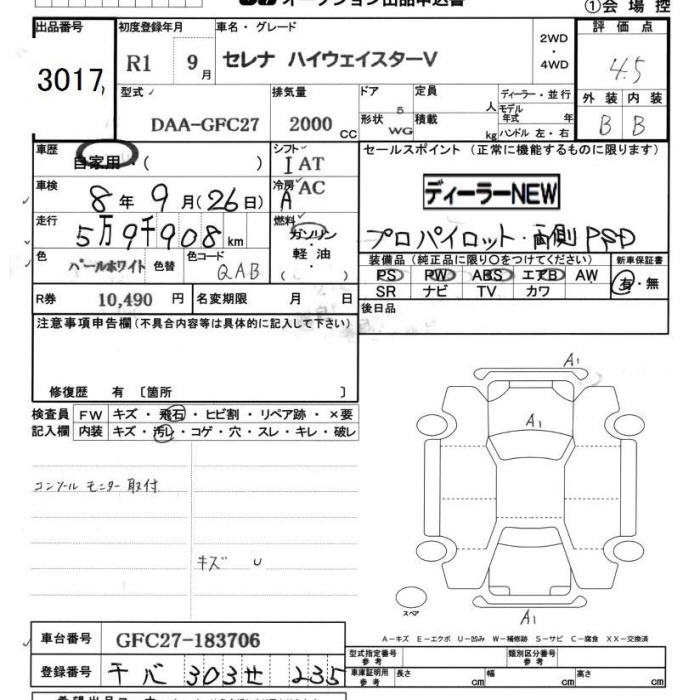 オークション出品申込書
①会場控
出品番号 初度登録年月 車名・グレード 評価点
3017 R1 9月 セレナ ハイウェイスターV 2WD・4WD 4.5
型式 排気量 ドア 定員 ディーラー・並行 外装 内装
DAA-GFC27 2000 CC 5 人 モデル年式 年 B B
形状 WG 積載 kg ハンドル 左・右
車歴 シフト セールスポイント(正常に機能するものに限ります)
自家用・( ) IAT
車検 冷房 ディーラーNEW
8年9月(26日) A AC
走行 燃料 プロパイロット・両側PSD
5万9千908km ガソリン・軽油
色 色替 色コード ( ) 装備品(純正品に限り○をつけてください) 新車保証書
パールホワイト QAB PS PW ABS エアB AW 有・無
SR ナビ TV カワ
R券 10,490円 名変期限 月 日 後日品
注意事項申告欄(不具合内容等は具体的に記入して下さい)
修復歴 有 〔箇所 〕
検査員記入欄 FW キズ・飛石・ヒビ割・リペア跡・×要
内装 キズ・汚レ・コゲ・穴・スレ・キレ・破レ
コンソール モニター取付
キズ U
A1
A1
A1
スペア
A-キズ E-エクボ U-凹み W-補修跡 S-サビ C-腐食 XX-交換済
車台番号 GFC27-183706 型式指定番号 参考 類別区分番号 参考
登録番号 千バ 303 せ 235 車庫証明用 参考 長さ cm 幅 cm 高さ cm